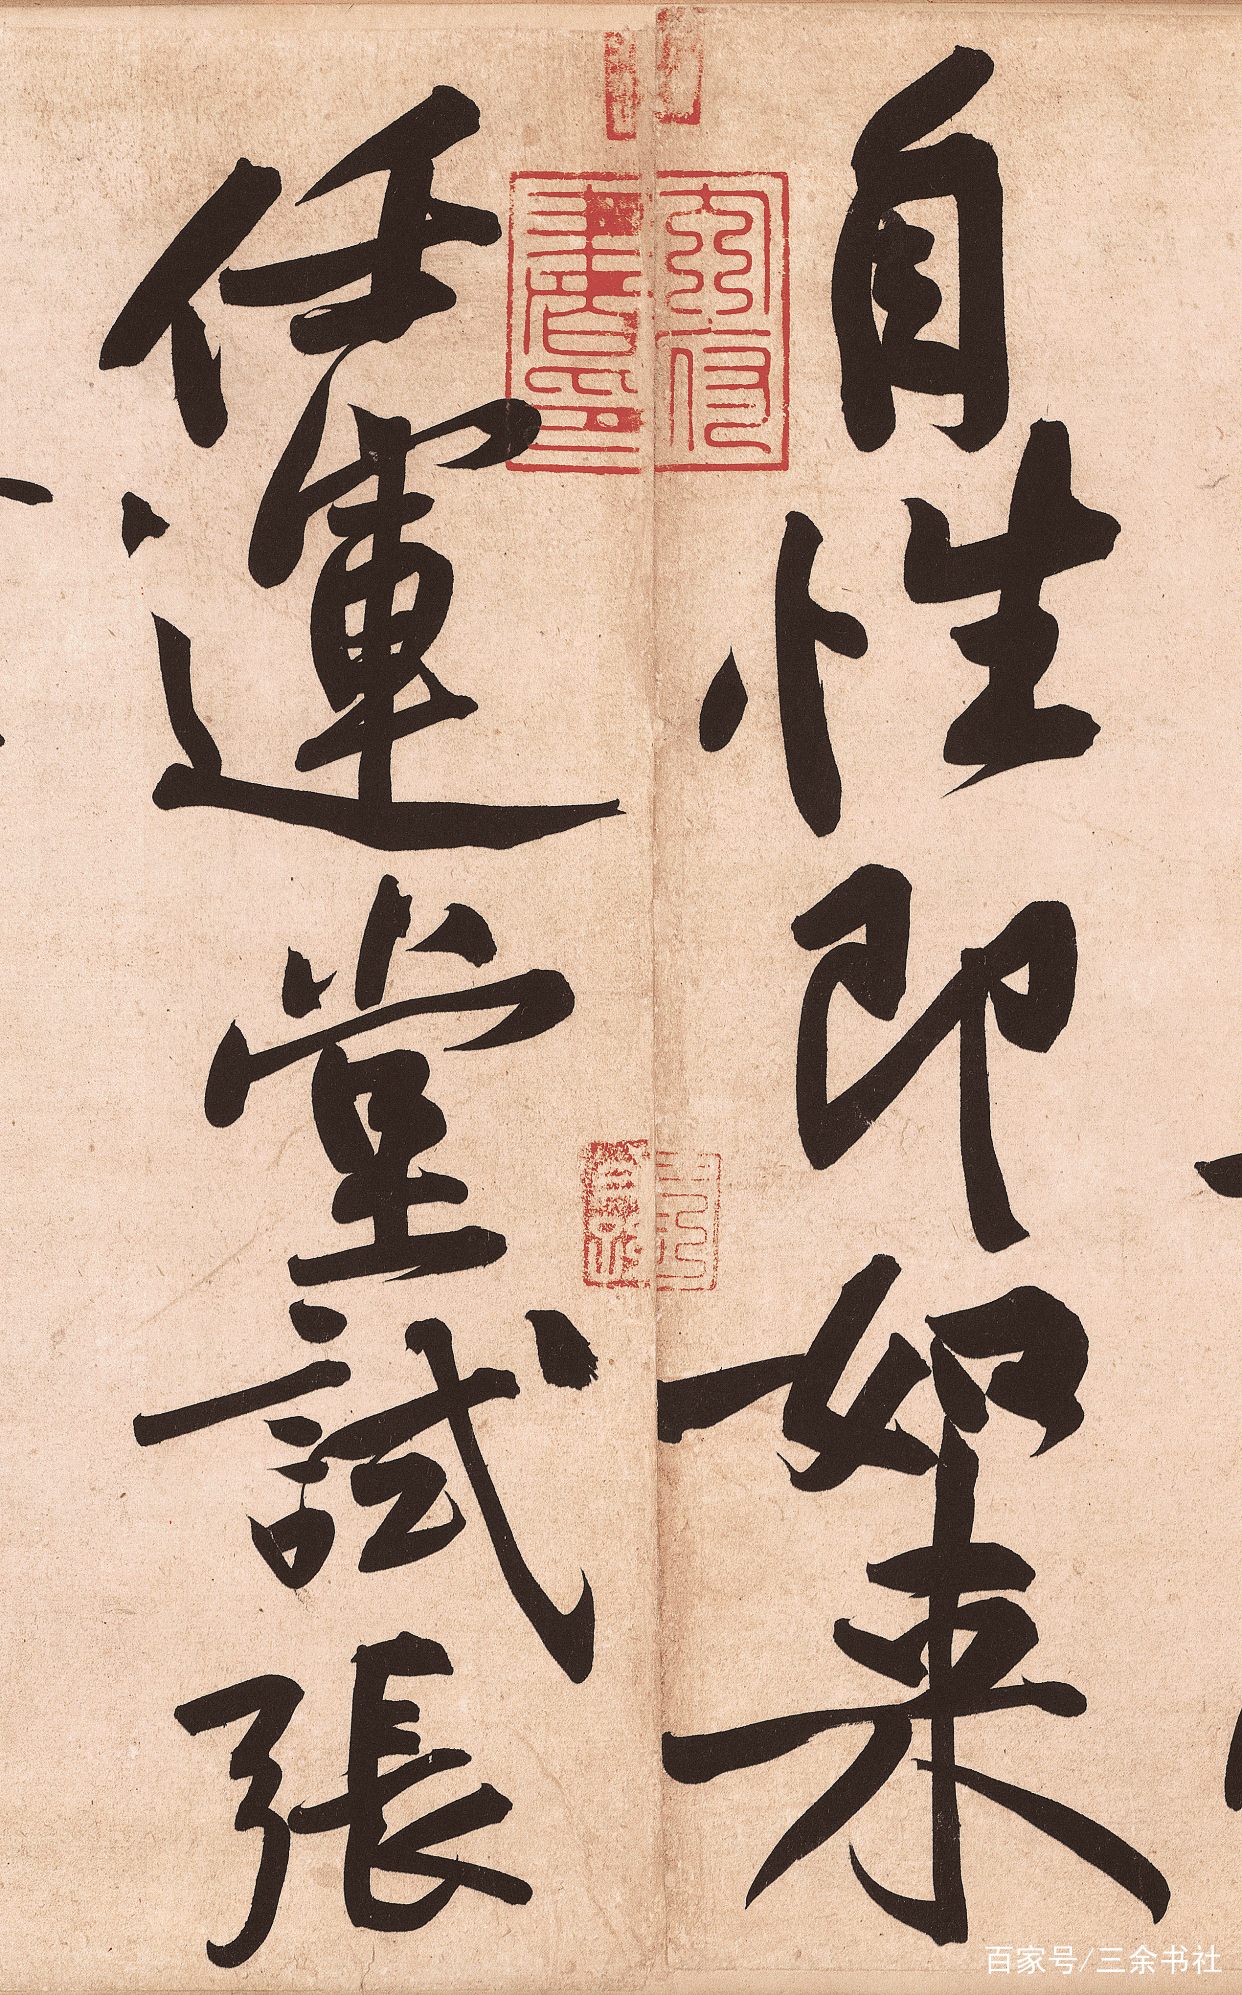 自性即如来
任運堂試張
百家号/三余书社